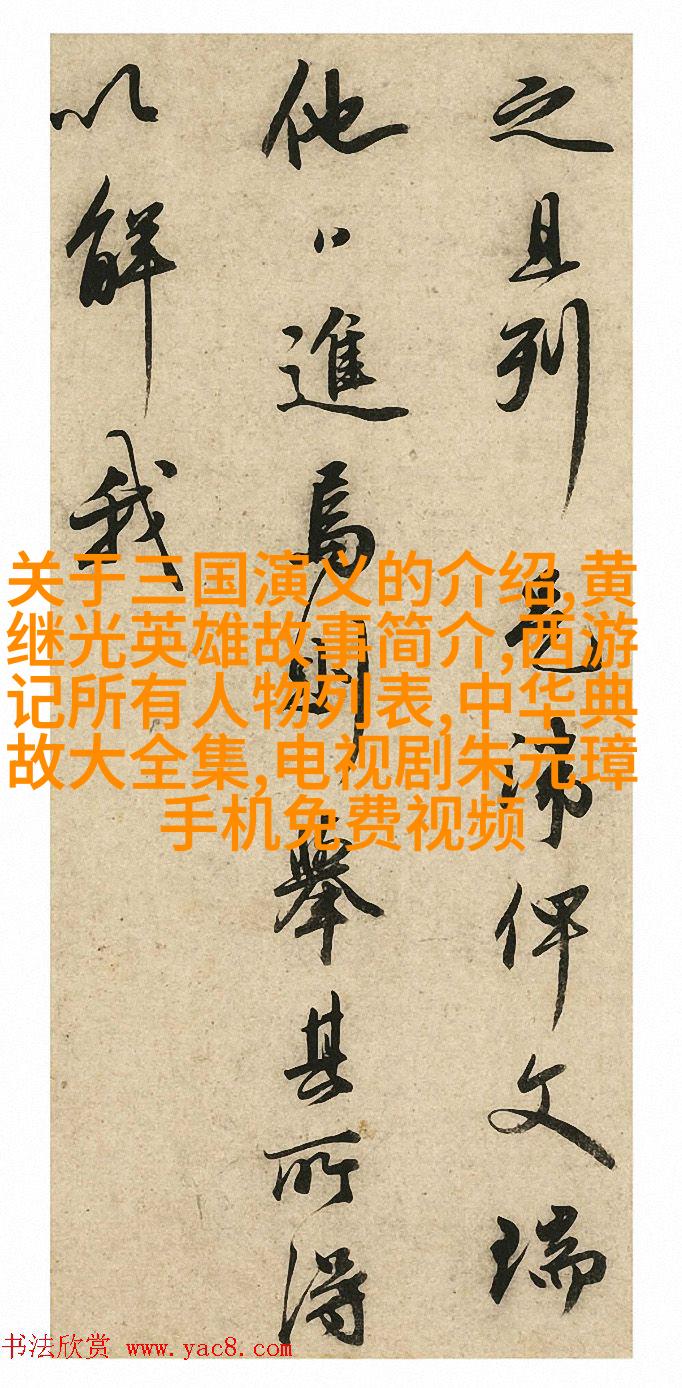 之且列沸俾文瑞
他進焉舉其所得
以解我
关于三国演义的介绍,黄
继光英雄故事简介,西游
记所有人物列表,中华典
故大全集,电视剧朱元璋
手机免费视频
书法欣赏 www.yac8.com